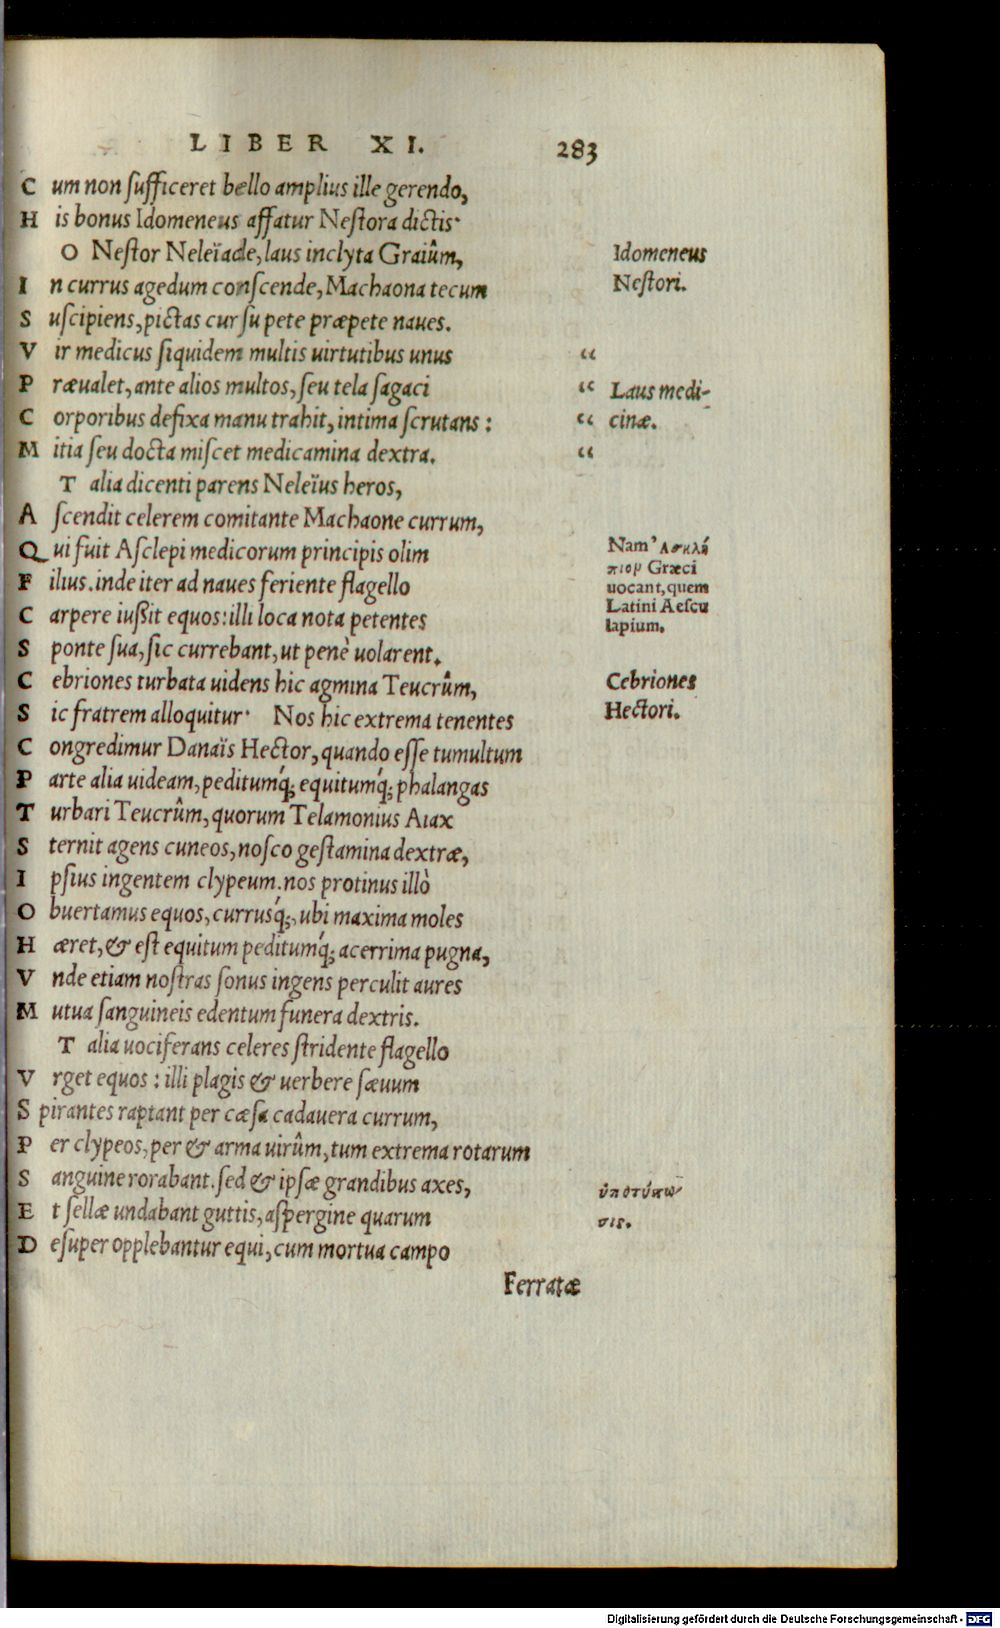 LIBER XI. 283
Cum non ſufficeret bello amplius ille gerendo,
His bonus Idomeneus affatur Neſtora dictis·
O Neſtor Neleïade, laus inclyta Graiûm,
Idomeneus
In currus agedum conſcende, Machaona tecum
Neſtori.
Suſcipiens, pictas curſu pete præpete naues.
Vir medicus ſiquidem multis uirtutibus unus
“
Præualet, ante alios multos, ſeu tela ſagaci
“ Laus medi-
Corporibus defixa manu trahit, intima ſcrutans:
“ cinæ.
Mitia ſeu docta miſcet medicamina dextra.
“
Talia dicenti parens Neleïus heros,
Aſcendit celerem comitante Machaone currum,
Qui fuit Aſclepi medicorum principis olim
Nam Ἀσκλή
πιον Græci
Filius. inde iter ad naues feriente flagello
uocant, quem
Carpere iußit equos: illi loca nota petentes
Latini Aeſcu
lapium.
Sponte ſua, ſic currebant, ut penè uolarent.
Cebriones turbata uidens hic agmina Teucrûm,
Cebriones
Sic fratrem alloquitur· Nos hic extrema tenentes
Hectori.
Congredimur Danaïs Hector, quando eſſe tumultum
Parte alia uideam, peditumq́; equitumq́; phalangas
Turbari Teucrûm, quorum Telamonius Aiax
Sternit agens cuneos, noſco geſtamina dextræ,
Ipſius ingentem clypeum. nos protinus illò
Obuertamus equos, currusq́;, ubi maxima moles
Hæret, & eſt equitum peditumq́; acerrima pugna,
Vnde etiam noſtras ſonus ingens perculit aures
Mutua ſanguineis edentum funera dextris.
Talia uociferans celeres ſtridente flagello
Vrget equos: illi plagis & uerbere ſæuum
Spirantes raptant per cæſa cadauera currum,
Per clypeos, per & arma uirûm, tum extrema rotarum
Sanguine rorabant. ſed & ipſæ grandibus axes,
ὑποτύπω-
Et ſellæ undabant guttis, aſpergine quarum
σις.
Deſuper opplebantur equi, cum mortua campo
Ferratæ
Digitalisierung gefördert durch die Deutsche Forschungsgemeinschaft - DFG